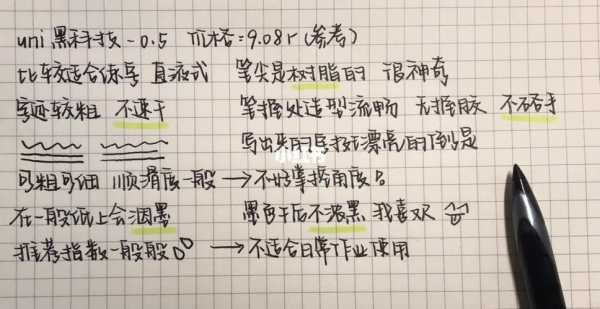 uni 黑科技-0.5 价格:9.08r(参考)
比较适合练字 直液式 笔尖是树脂的 很神奇
字迹较粗 不速干 笔握处造型流畅 无握胶 不硌手
写出来的字挺漂亮的倒是
小红书
可粗可细 顺滑度一般→不好掌握角度。
在一般纸上会洇墨 墨色干后不泼黑 我喜欢
推荐指数一般般 →不适合日常作业使用